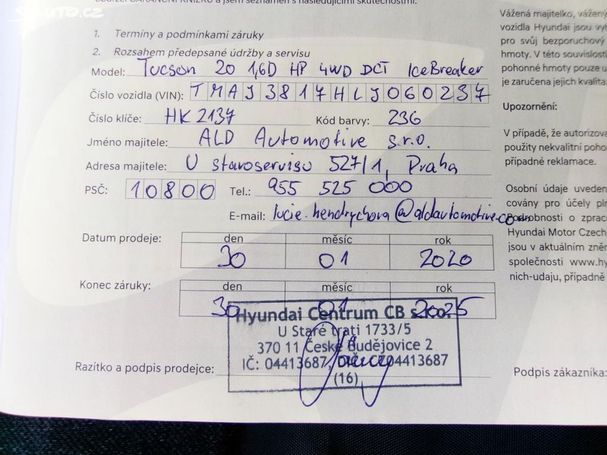 sauto.cz
ZÁRUČNÍ KNIŽKU a jsem seznámen s následujícími skutečnostmi:
1. Termíny a podmínkami záruky
2. Rozsahem předepsané údržby a servisu
Model: Tucson 20 1,6D HP 4WD DCT IceBreaker
Číslo vozidla (VIN): TMAJ3817HLJ060237
Číslo klíče: HK2137 Kód barvy: 236
Jméno majitele: ALD Automotive s.r.o.
Adresa majitele: U staroservisu 527/1, Praha
PSČ: 10800 Tel.: 955 525 000
E-mail: lucie.hendrychova@aldautomotive.com
Datum prodeje: den měsíc rok
30 01 2020
Konec záruky: den měsíc rok
30 01 2025
Hyundai Centrum CB s.r.o.
U Staré trati 1733/5
370 11 České Budějovice 2
IČ: 04413687, DIČ: CZ04413687
(16)
Razítko a podpis prodejce:
Vážená majitelko, vážený
vozidla Hyundai jsou vy
pro svůj bezporuchový
hmoty. V této souvislosti
pohonné hmoty pouze u
je zaručena jejich kvalita.
Upozornění:
V případě, že autorizova
použity nekvalitní poho
případné reklamace.
Osobní údaje uveden
covány pro účely pln
Podrobnosti o zprac
Hyundai Motor Czech
jsou v aktuálním zněn
společnosti www.hy
nich-udaju, případně
Podpis zákazníka: